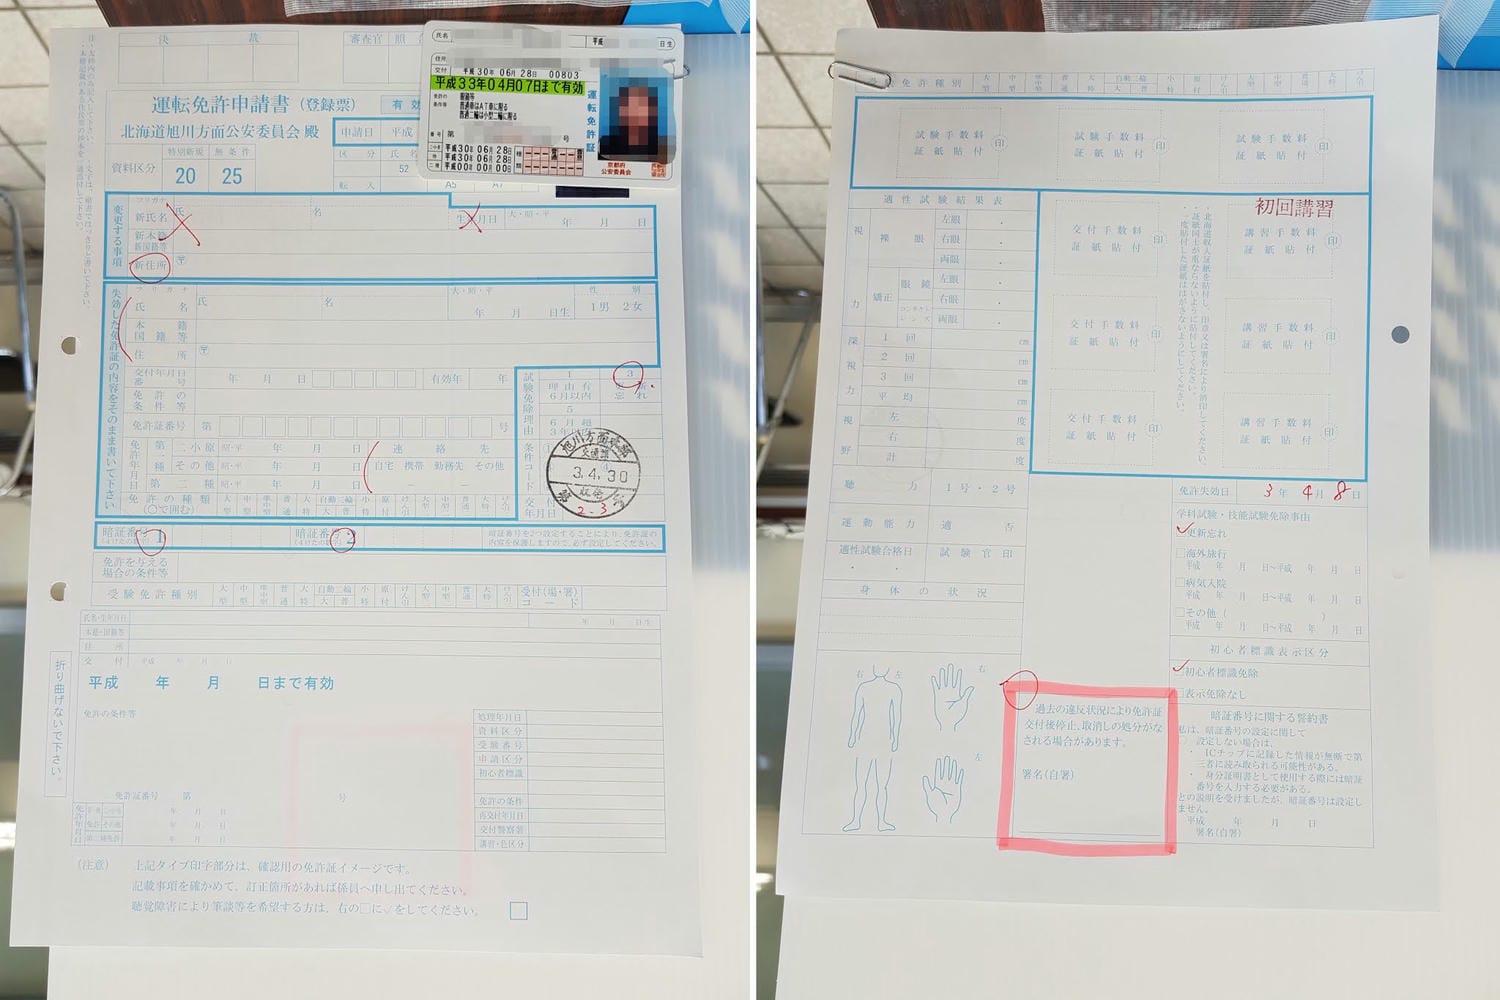 決 裁
審査官 照
運転免許申請書(登録票)
北海道旭川方面公安委員会 殿
有 効
申請日 平成
特別新規 無条件
資料区分
20 25
区 分 氏名
52
転 入
A5 A7
氏名 平成 日生
住所
交付 平成30年06月28日 00803
平成33年04月07日まで有効
免許の
条件等
眼鏡等
普通車はAT車に限る
普通二輪は小型二輪に限る
番号 第 号
平成30年06月28日
平成30年06月28日
平成00年00月00日
運転免許証
京都府
公安委員会
変更する事項
フリガナ
新氏名 氏 名 生年月日 大・昭・平 年 月 日
新本籍
新国籍等
新住所 〒
失効した免許証の内容をそのまま書いて下さい
フリガナ
氏 名 氏 名 大・昭・平 年 月 日生
性 別
1男 2女
本 籍
国 籍 等
住 所 〒
交付年月日 年 月 日 有効年 年
番 号
免許の
条件等
免許証番号 第 号
免許年月日
第一種 二小原 昭・平 年 月 日
その他 昭・平 年 月 日
第二種 昭・平 年 月 日
連 絡 先
自宅 携帯 勤務先 その他
免許の種類
(○で囲む)
大型 中型 準中型 普通 大特 自動二輪 大 普 小特 原付 けん引 大型 中型 普通 大特 けん引
試験免除理由
1 3
理由有 更新
6月以内 忘れ
5
6月超
3年
条件コード
交付年月日
旭川方面本部
交通課
3.4.30
2-3
暗証番号1
暗証番号2
暗証番号を2つ設定することにより、免許証の
内容を保護しますので、必ず設定してください。
免許を与える
場合の条件等
受験免許種別 大型 中型 準中型 普通 大特 自動二輪 大 普 小特 原付 けん引 大型 中型 普通 大特 けん引 受付(場・署)
コード
氏名・生年月日 年 月 日生
本籍・国籍等
住 所
交 付 平成 年 月 日
平成 年 月 日まで有効
免許の条件等
折り曲げないで下さい。
処理年月日
資料区分
受験番号
申請区分
初心者標識
免許の条件
再交付年月日
交付警察署
講習・色区分
免許証番号 第 号
免許年月日
年 月 日
年 月 日
年 月 日
(注意) 上記タイプ印字部分は、確認用の免許証イメージです。
記載事項を確かめて、訂正箇所があれば係員へ申し出てください。
聴覚障害により筆談等を希望する方は、右の□に✓をしてください。
受験免許種別 大型 中型 準中型 普通 大特 自動二輪 大 普 小特 原付 けん引 大型 中型 普通 大特 けん引
試験手数料
証紙貼付
印
試験手数料
証紙貼付
印
試験手数料
証紙貼付
印
適性試験結果表
視力
裸眼
左眼
右眼
両眼
矯正
眼鏡
コンタクトレンズ
左眼
右眼
両眼
深視力
1回 cm
2回 cm
3回 cm
平均 cm
視野
左 度
右 度
計 度
聴 力 1号・2号
運動能力 適 否
適性試験合格日 試験官印
身体の状況
交付手数料
証紙貼付
印
交付手数料
証紙貼付
印
交付手数料
証紙貼付
印
・北海道収入証紙を貼付し、印章又は署名により消印してください。
・証紙同士が重ならないように貼付してください。
・一度貼付した証紙ははがさないようにしてください。
初回講習
講習手数料
証紙貼付
印
講習手数料
証紙貼付
印
講習手数料
証紙貼付
印
免許失効日 3年4月8日
学科試験・技能試験免除事由
更新忘れ
□海外旅行
平成 年 月 日〜平成 年 月 日
□病気入院
平成 年 月 日〜平成 年 月 日
□その他( )
平成 年 月 日〜平成 年 月 日
初心者標識表示区分
初心者標識免除
□表示免除なし
右 左
右
左
過去の違反状況により免許証
交付後停止、取消しの処分がな
される場合があります。
署名(自署)
暗証番号に関する誓約書
私は、暗証番号の設定に関して
設定しない場合は、
・ ICチップに記録した情報が無断で第
三者に読み取られる可能性がある。
・ 身分証明書として使用する際には暗証
番号を入力する必要がある。
との説明を受けましたが、暗証番号は設定し
ません。
平成 年 月 日
署名(自署)